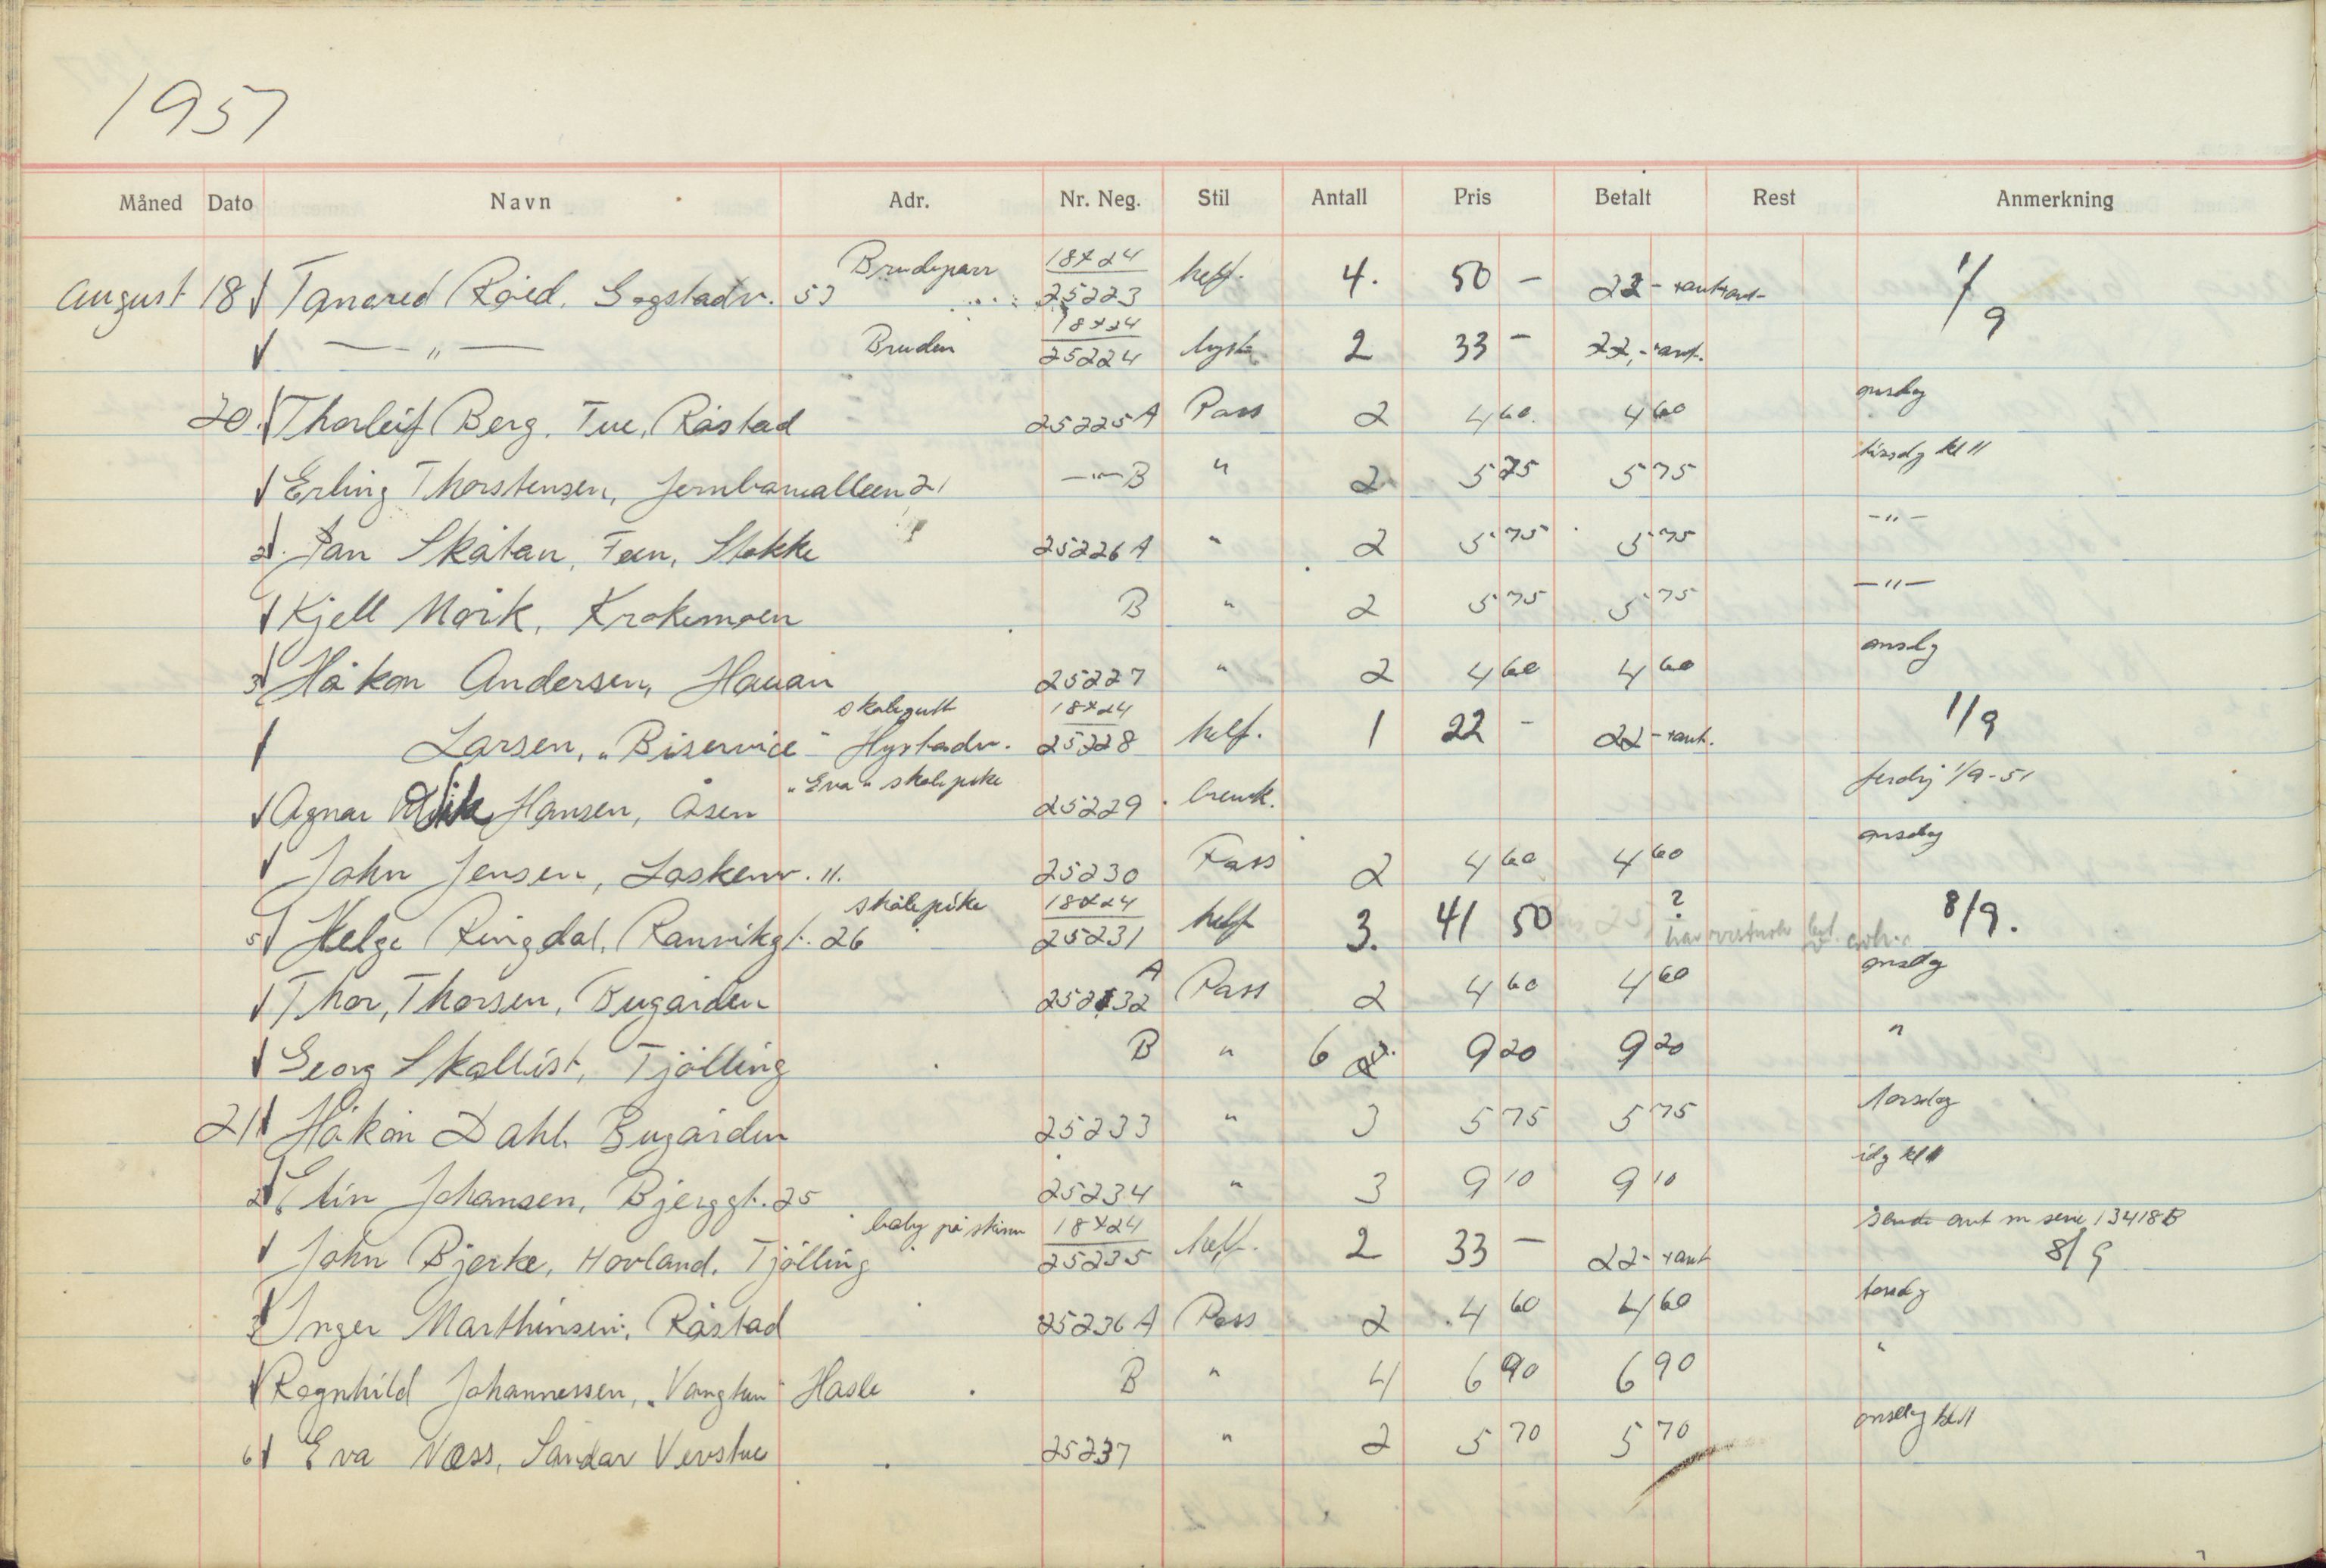 1951
Måned Dato Navn Adr. Nr. Neg. Stil Antall Pris Betalt Rest Anmerkning
Brudepar 18x24
August 18 Tancred Röed. Gogstadv. 53 25223 helf. 4. 50 - 22 - + ant + ant - 1/9
Bruden 18x24
— " — 25224 bryst 2 33 - 22,- + ant.
20. Thorleif Berg. Tue, Råstad 25225 A Pass 2 4 60 4 60 onsdag
Erling Thorstensen, Jernbanealleen 21 — " — B " 2 5 75 5 75 tirsdg kl 11
2. Jan Skåtan, Feen, Stokke 25226 A " 2 5 75 5 75 - " -
Kjell Mörk, Krokemoen B " 2 5 75 5 75 — " —
3 Håkon Andersen, Hauan 25227 " 2 4 60 4 60 onsdg
skolegutt 18x24
Larsen, "Biservice" Hystadv. 25228 helf. 1 22 - 22 - + ant. 1/9
"Eva" skolepike
Agnar Hansen, Åsen 25229 brevk. ferdig 1/9-51
John Jensen, Laskenv. 11. 25230 Pass 2 4 60 4 60 onsdag
skolepike 18x24
5 Helge Ringdal, Ranvikgt. 26 25231 helf 3. 41 50 ? 8/9.
Thor, Thorsen, Bugården 25232 A Pass 2 4 60 4 60 onsdg
Georg Skallist, Tjölling B " 6 9 20 9 20 "
21 Håkon Dahl. Bugården 25233 " 3 5 75 5 75 torsdag
2 Elin Johansen, Bjerggt. 25 25234 " 3 9 10 9 10 idg kl
baby på skinn 18x24 sende ant m serie 13418 B
John Bjerke, Hovland. Tjölling 25235 helf. 2 33 - 22 - + ant 8/9
3 Inger Marthinsen, Råstad 25236 A Pass 2 4 60 4 60 torsdg
Ragnhild Johannessen, "Vangtun" Hasle B " 4 6 90 6 90 "
6 Eva Næss, Sandar Vevstue 25237 " 2 5 70 5 70 onsdag kl 11